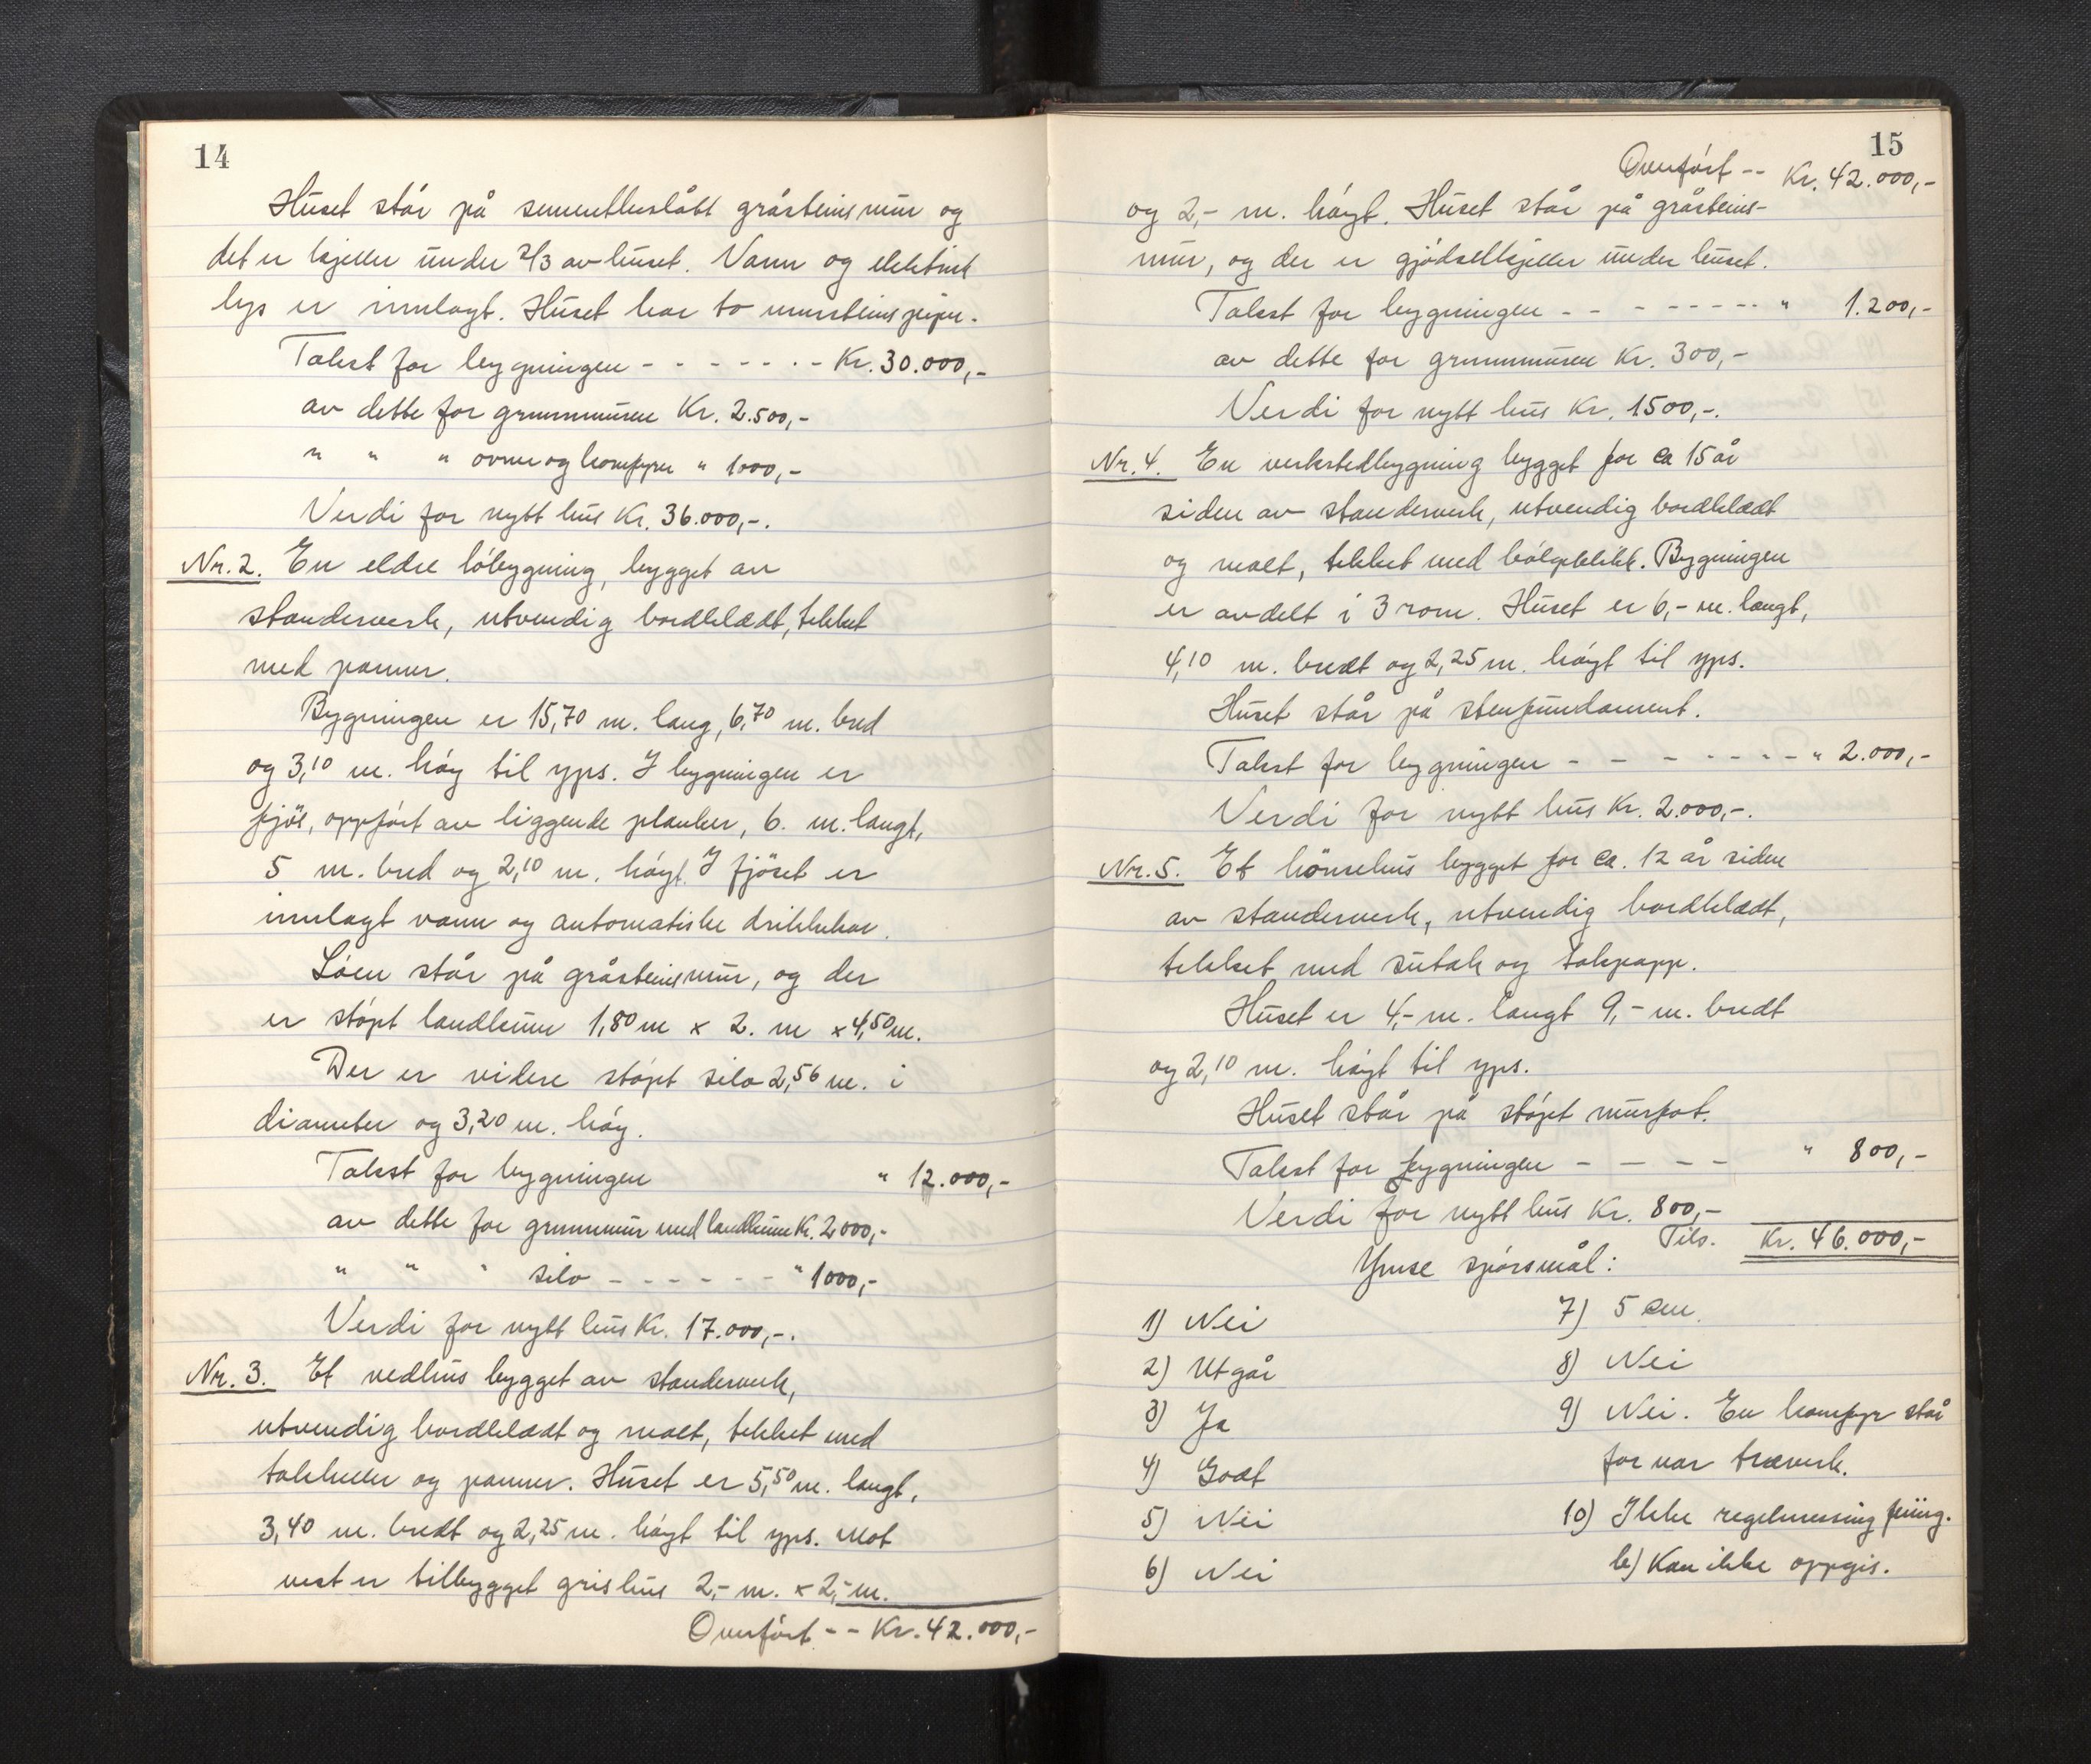 14
Huset står på sementtuslått gråsteinsmur og
det er kjeller under 2/3 av huset. Vann og elektrisk
lys er innlagt. Huset har to mursteinspiper.
Takst for bygningen - - - - - - - Kr. 30.000,-
av dette for grunnmuren Kr. 2.500,-
" " " ovner og komfyrer " 1000,-
Verdi for nytt hus Kr. 36.000,-.
Nr. 2. En eldre löbygning, bygget av
standerverk, utvendig bordklædt, tekket
med panner.
Bygningen er 15,70 m. lang, 6,70 m. bred
og 3,10 m. höy til gps. I bygningen er
fjös, oppfört av liggende planker, 6. m. langt,
5 m. bred og 2,10 m. höyt. I fjöset er
innlagt vann og automatiske drikkekar.
Löen står på gråsteinsmur, og der
er stöpt landkum 1,80 m x 2. m x 4,50 m.
Der er videre stöpt silo 2,56 m. i
diameter og 3,20 m. höy.
Takst for bygningen " 12.000,-
av dette for grunnmur med landkum Kr. 2000,-
" " " silo - - - - - - " 1000,-
Verdi for nytt hus Kr. 17.000,-.
Nr. 3. Et vedhus bygget av standerverk,
utvendig bordklædt og malt, tekket med
takheller og panner. Huset er 5,50 m. langt,
3,40 m. bredt og 2,25 m. höyt til gps. Mot
vest er tilbygget grishus 2,- m. x 2,- m.
Overfört - - Kr. 42.000,-
15
Overfört -- Kr. 42.000,-
og 2,- m. höyt. Huset står på gråsteins-
mur, og der er gjödselkjeller under huset.
Takst for bygningen - - - - - - - " 1.200,-
av dette for grunnmuren Kr. 300,-
Verdi for nytt hus Kr. 1500,-.
Nr. 4. En verkstedbygning bygget for ca 15 år
siden av standerverk, utvendig bordklædt
og malt, tekket med bölgeblikk. Bygningen
er avdelt i 3 rom. Huset er 6,- m. langt,
4,10 m. bredt og 2,25 m. höyt til gps.
Huset står på stenfundament.
Takst for bygningen - - - - - - - - " 2.000,-
Verdi for nytt hus Kr. 2.000,-.
Nr. 5. Et hönsehus bygget for ca. 12 år siden
av standerverk, utvendig bordklædt,
tekket med sutak og takpapp.
Huset er 4,- m. langt 9,- m. bredt
og 2,10 m. höyt til gps.
Huset står på stöpt murfot.
Takst for bygningen - - - - " 800,-
Verdi for nytt hus Kr. 800,-
Tils. Kr. 46.000,-
Ymse spörsmål:
1) Nei
2) Utgår
3) Ja
4) Godt
5) Nei
6) Nei
7) 5 cm.
8) Nei
9) Nei. En komfyr står
for nær træverk.
10) Ikke regelmessing feiing.
b) Kan ikke oppgis.